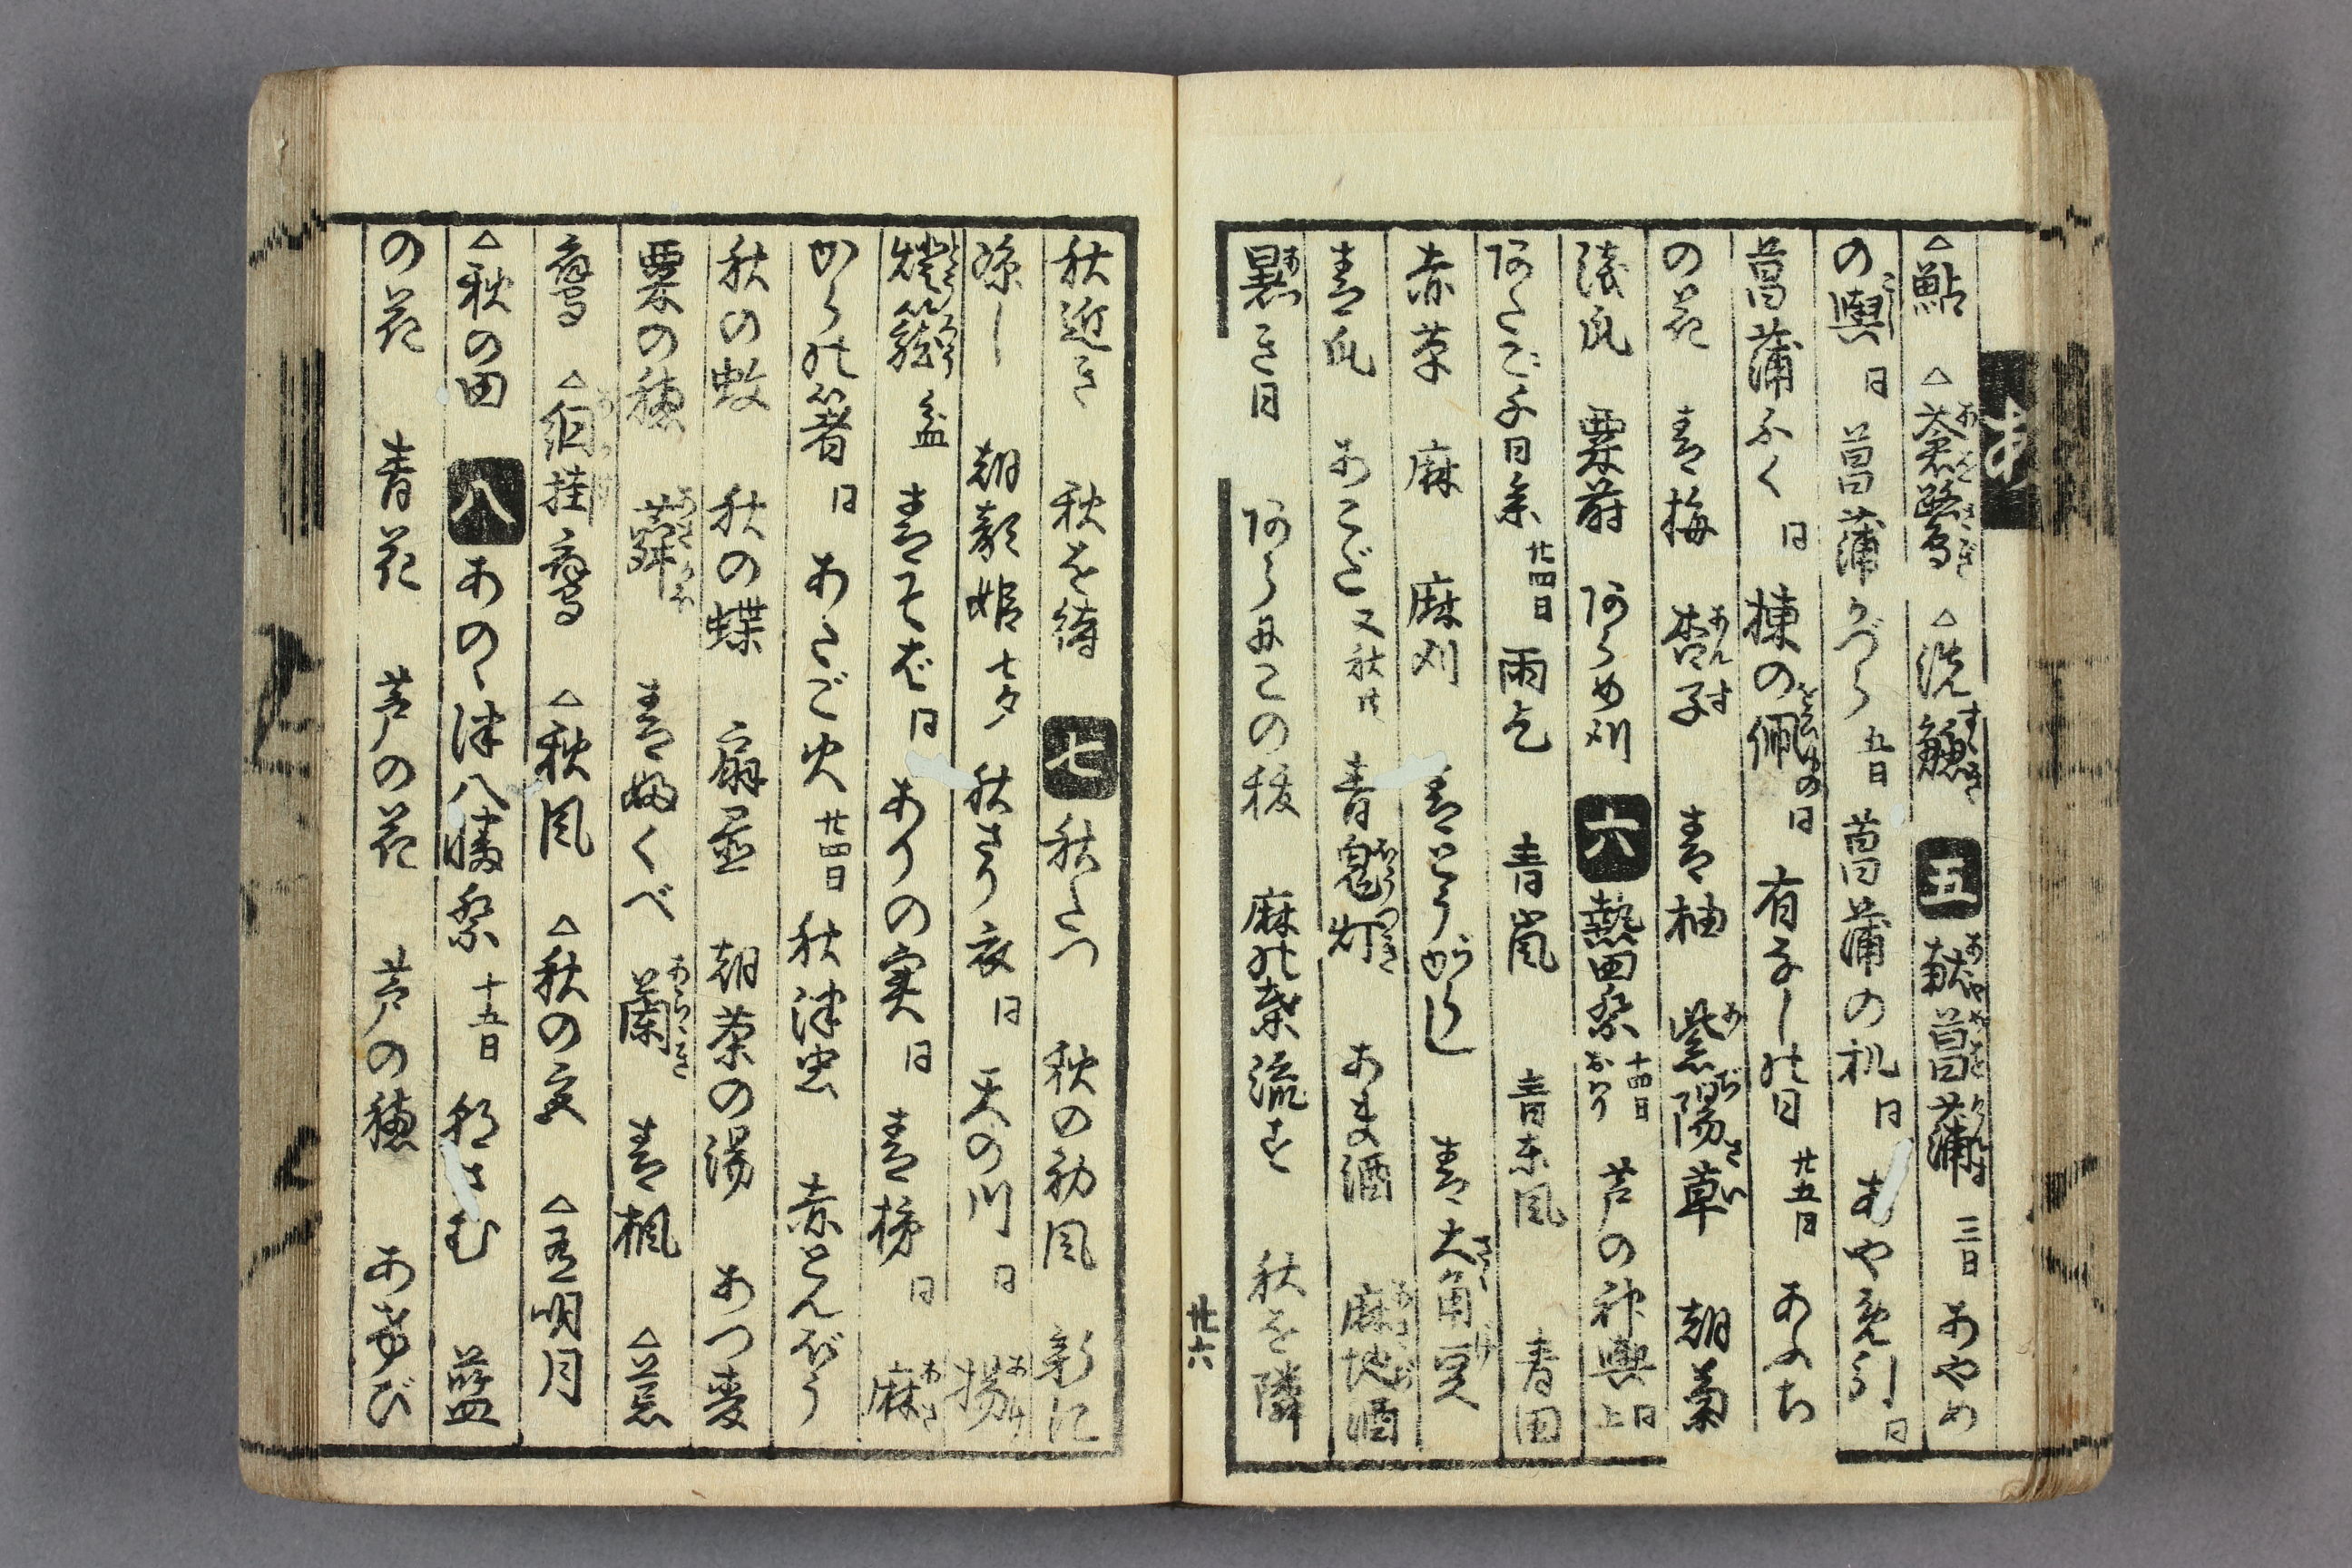 △鮎 △蒼鷺 △洗鱸 五 献菖蒲 三日 あやめ
の輿 日 菖蒲かづら 五日 菖蒲の机 日 あやめ引 日
菖蒲ふく 日 楝の佩 日 有無しの日 廿五日 あふち
の花 青梅 杏子 青柚 紫陽草 朝菊
浅瓜 粟蒔 あらめ刈 六 熱田祭 十四日 芦の神輿 日
あたご千日参 廿四日 雨乞 青嵐 青東風 青田
赤草 麻 麻刈 青とうがらし 青大角豆
青瓜 あこだ 又秋 青鬼灯 あま酒 麻地酒
暑き日 あらにこの祓 麻の葉流す 秋を隣
廿六
秋近き 秋を待 七 秋たつ 秋の初風 新に
涼し 朝顔姫 七夕 秋さり夜 日 天の川 日 揚
燈籠 盆 青そば 日 ありの実 日 青 日 麻
からの箸 日 あたご火 廿四日 秋津虫 赤とんぼう
秋の蚊 秋の蝶 扇置 朝茶の湯 あつ麦
粟の穂 蕣 青ふくべ 蘭 青楓 △
△秋風 △秋の 明月
△秋の田 八 あのゝ津八幡祭 十五日 むむ 藍
の花 青花 芦の花 芦の穂 あけび